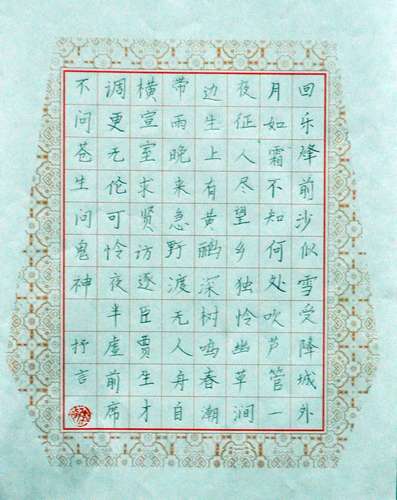 回乐烽前沙似雪受降城外
月如霜不知何处吹芦管一
夜征人尽望乡独怜幽草涧
边生上有黄鹂深树鸣春潮
带雨晚来急野渡无人舟自
横宣室求贤访逐臣贾生才
调更无伦可怜夜半虚前席
不问苍生问鬼神 抒言